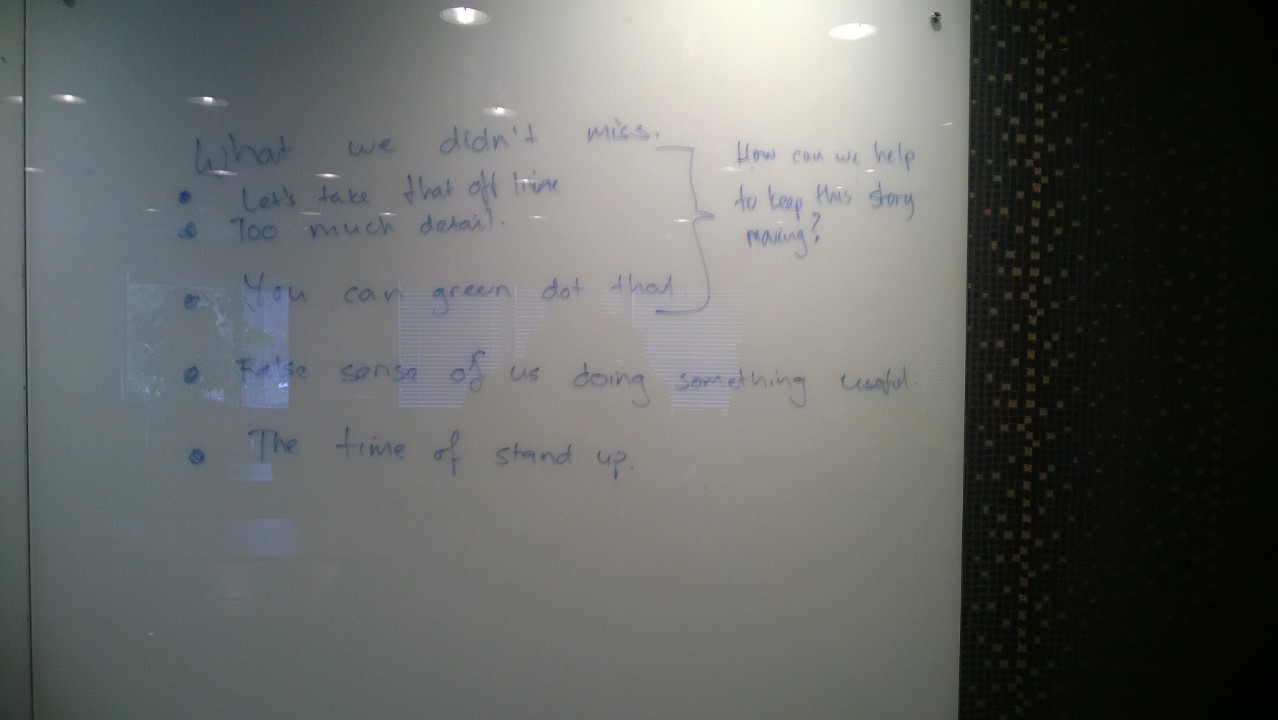 What we didn't miss.
• Let's take that off line
• Too much detail.
• You can green dot that.
• False sense of us doing something useful.
• The time of stand up.
How can we help
to keep this story
moving?